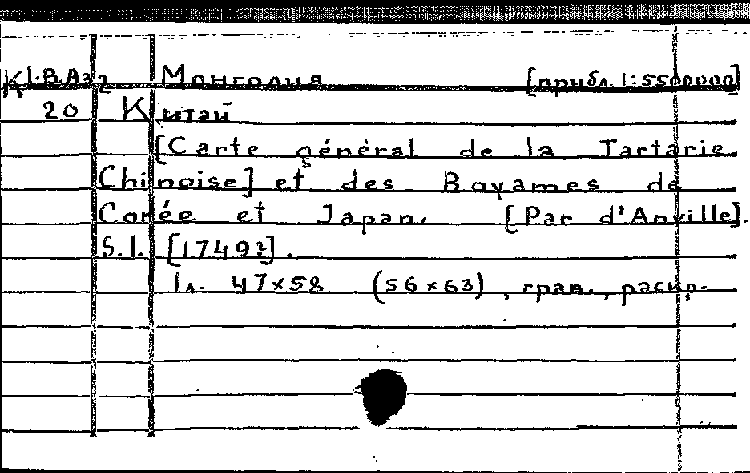 К 1.В.Аз2 Монголия [прибл. 1:5500000]
20 Китай
[Carte général de la Tartarie
Chinoise] et des Royames de
Corée et Japan. [Par d'Anville].
S.l. [1749?].
1 л. 47×58 (56×63), грав., раскр.